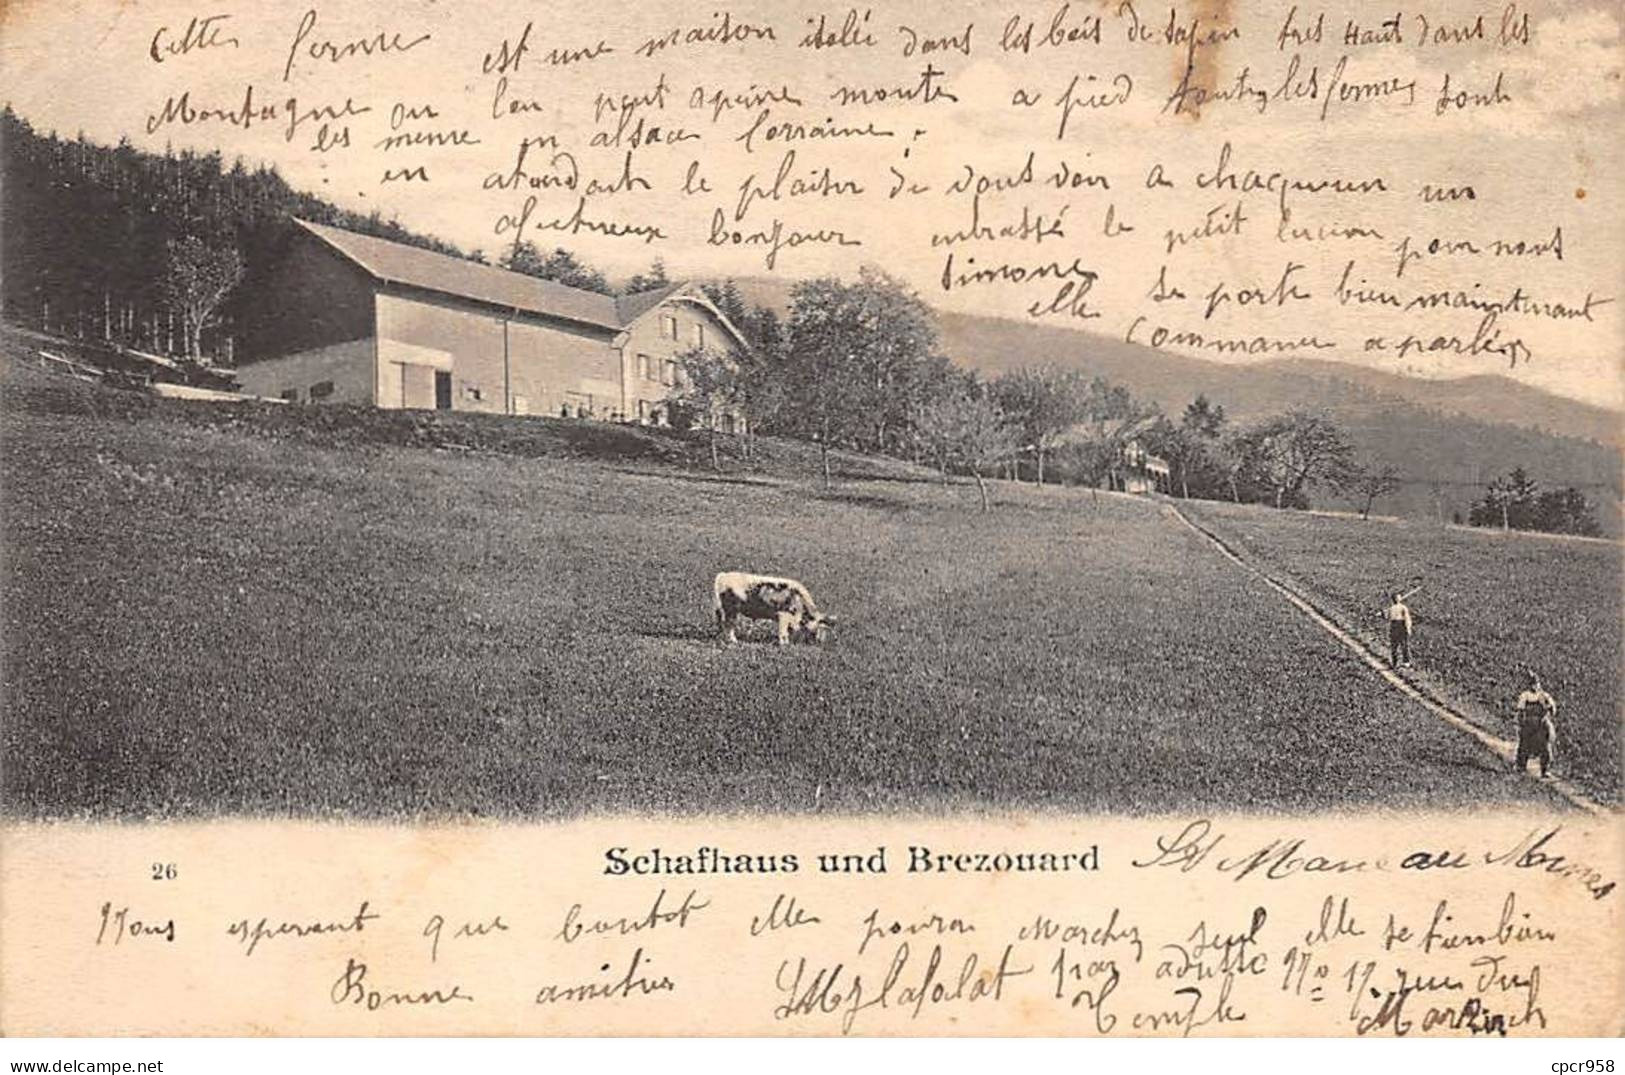 Cette ferme est une maison isolée dans les bois de sapin tres Haut dans les
Montagne ou lon peut apeine monte a pied toutes les fermes sont
les meme en alsace lorraine.
en atendant le plaisir de vous voir a chaqueun un
afectueux bonjour enbrassé le petit lucien pour nous
Simone se porte bien maintenant
elle commance a parlér
26
Schafhaus und Brezouard
Ste Marie au Mines
Nous esperont que bontot elle poura marchez seul elle se tien bien
Bonne amitier
adresse No 17 rue du
Temple Markirch
cpcr958